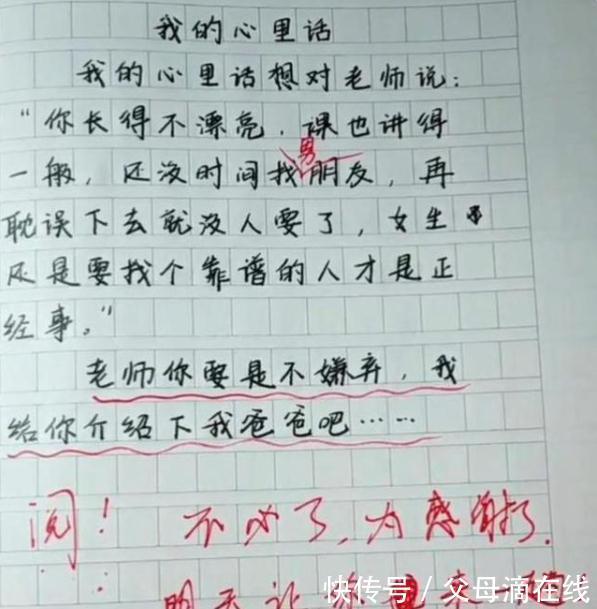 我的心里话
我的心里话想对老师说:
“你长得不漂亮,课也讲得
男
一般,还没时间找朋友,再
耽误下去就没人要了,女生
还是要找个靠谱的人才是正
经事。”
老师你要是不嫌弃,我
给你介绍下我爸爸吧……
阅!不必了,大感谢了.
明天让你
快传号/父母滴在线